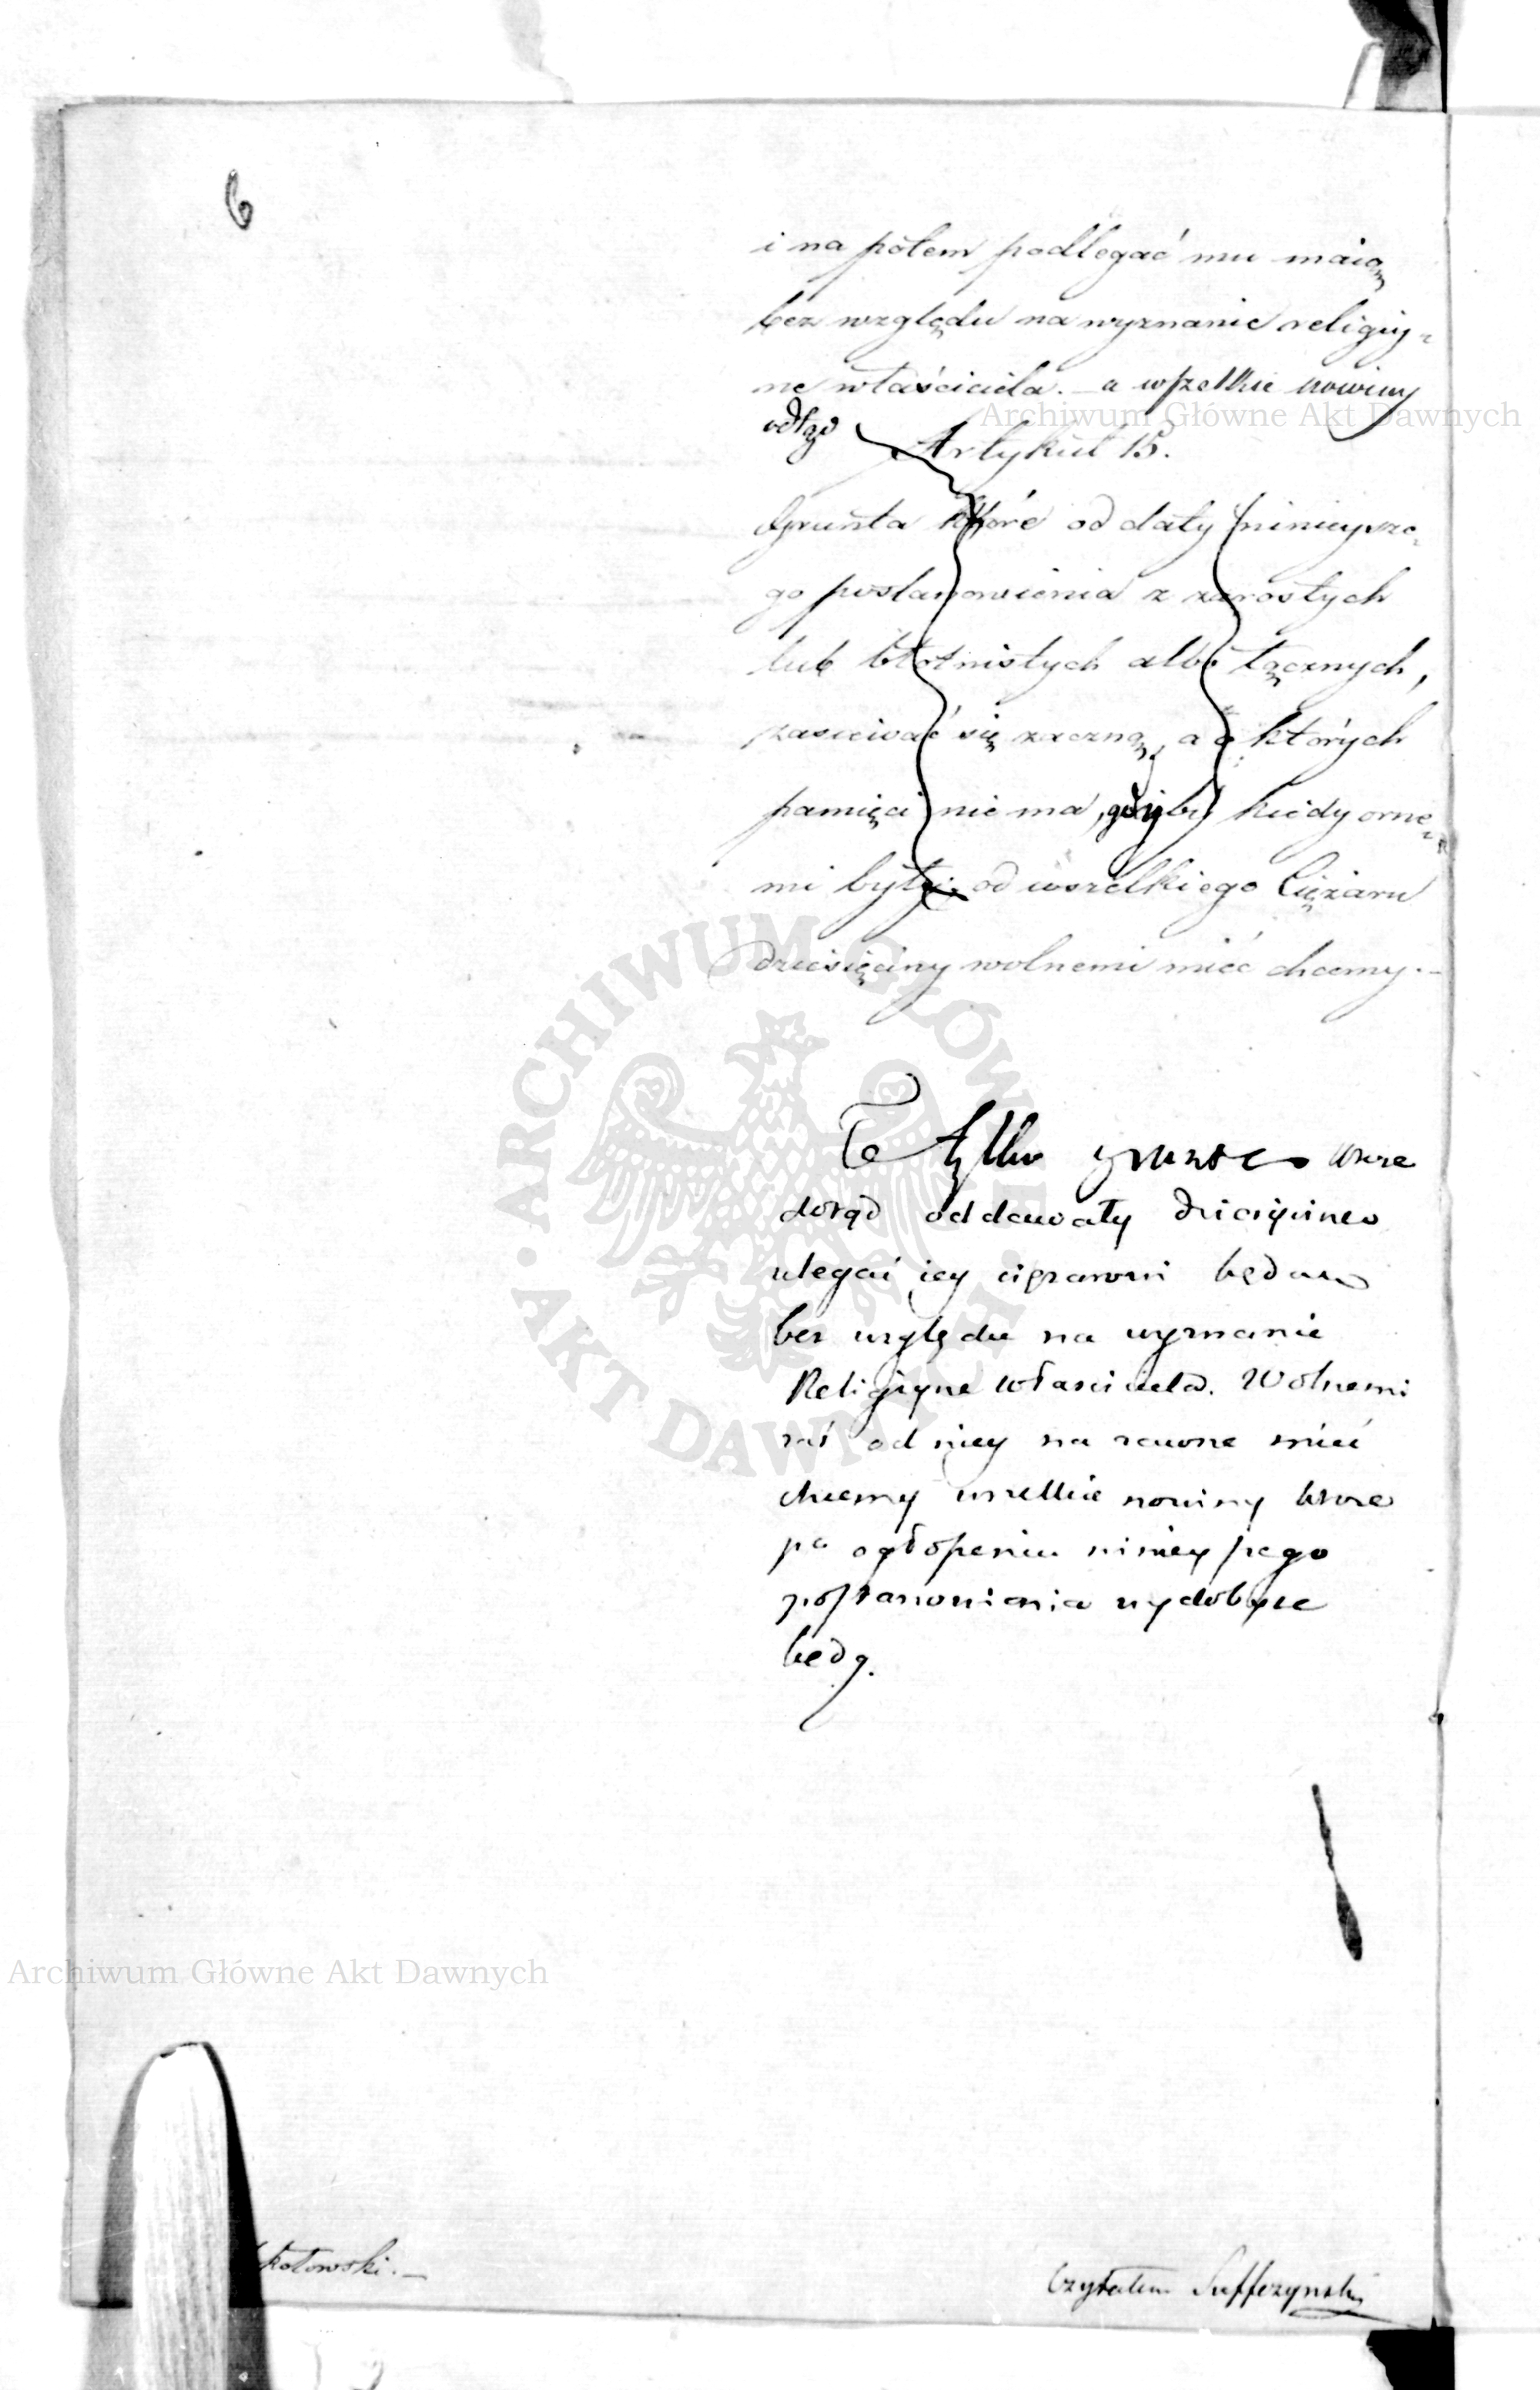 6
i na potem podlegać mu maią
bez względu na wyznanie religiy-
ne właściciela. – a wszelkie nowiny
odtąd
Artykuł 15.
Grunta które od daty ninieysze-
go postanowienia z zarosłych
lub błotnistych albo łącznych,
zasiewać się zaczną, a o których
pamięci nie ma, gdyby kiedy orne-
mi były, od wszelkiego Ciężaru
dziesięciny wolnemi mieć chcemy. –
Te tylko grunta które
dotąd oddawały dziesięcinę
ulegać iey ciężarowi będą
bez względu na wyznanie
Religiyne właściciela. Wolnemi
zaś od niey na zawsze mieć
chcemy wszelkie nowiny które
po ogłoszeniu ninieyszego
postanowienia wydobyte
będą.
kołowski. –
Czytałem Suffczynski
Archiwum Główne Akt Dawnych
Archiwum Główne Akt Dawnych
ARCHIWUM GŁÓWNE
AKT DAWNYCH